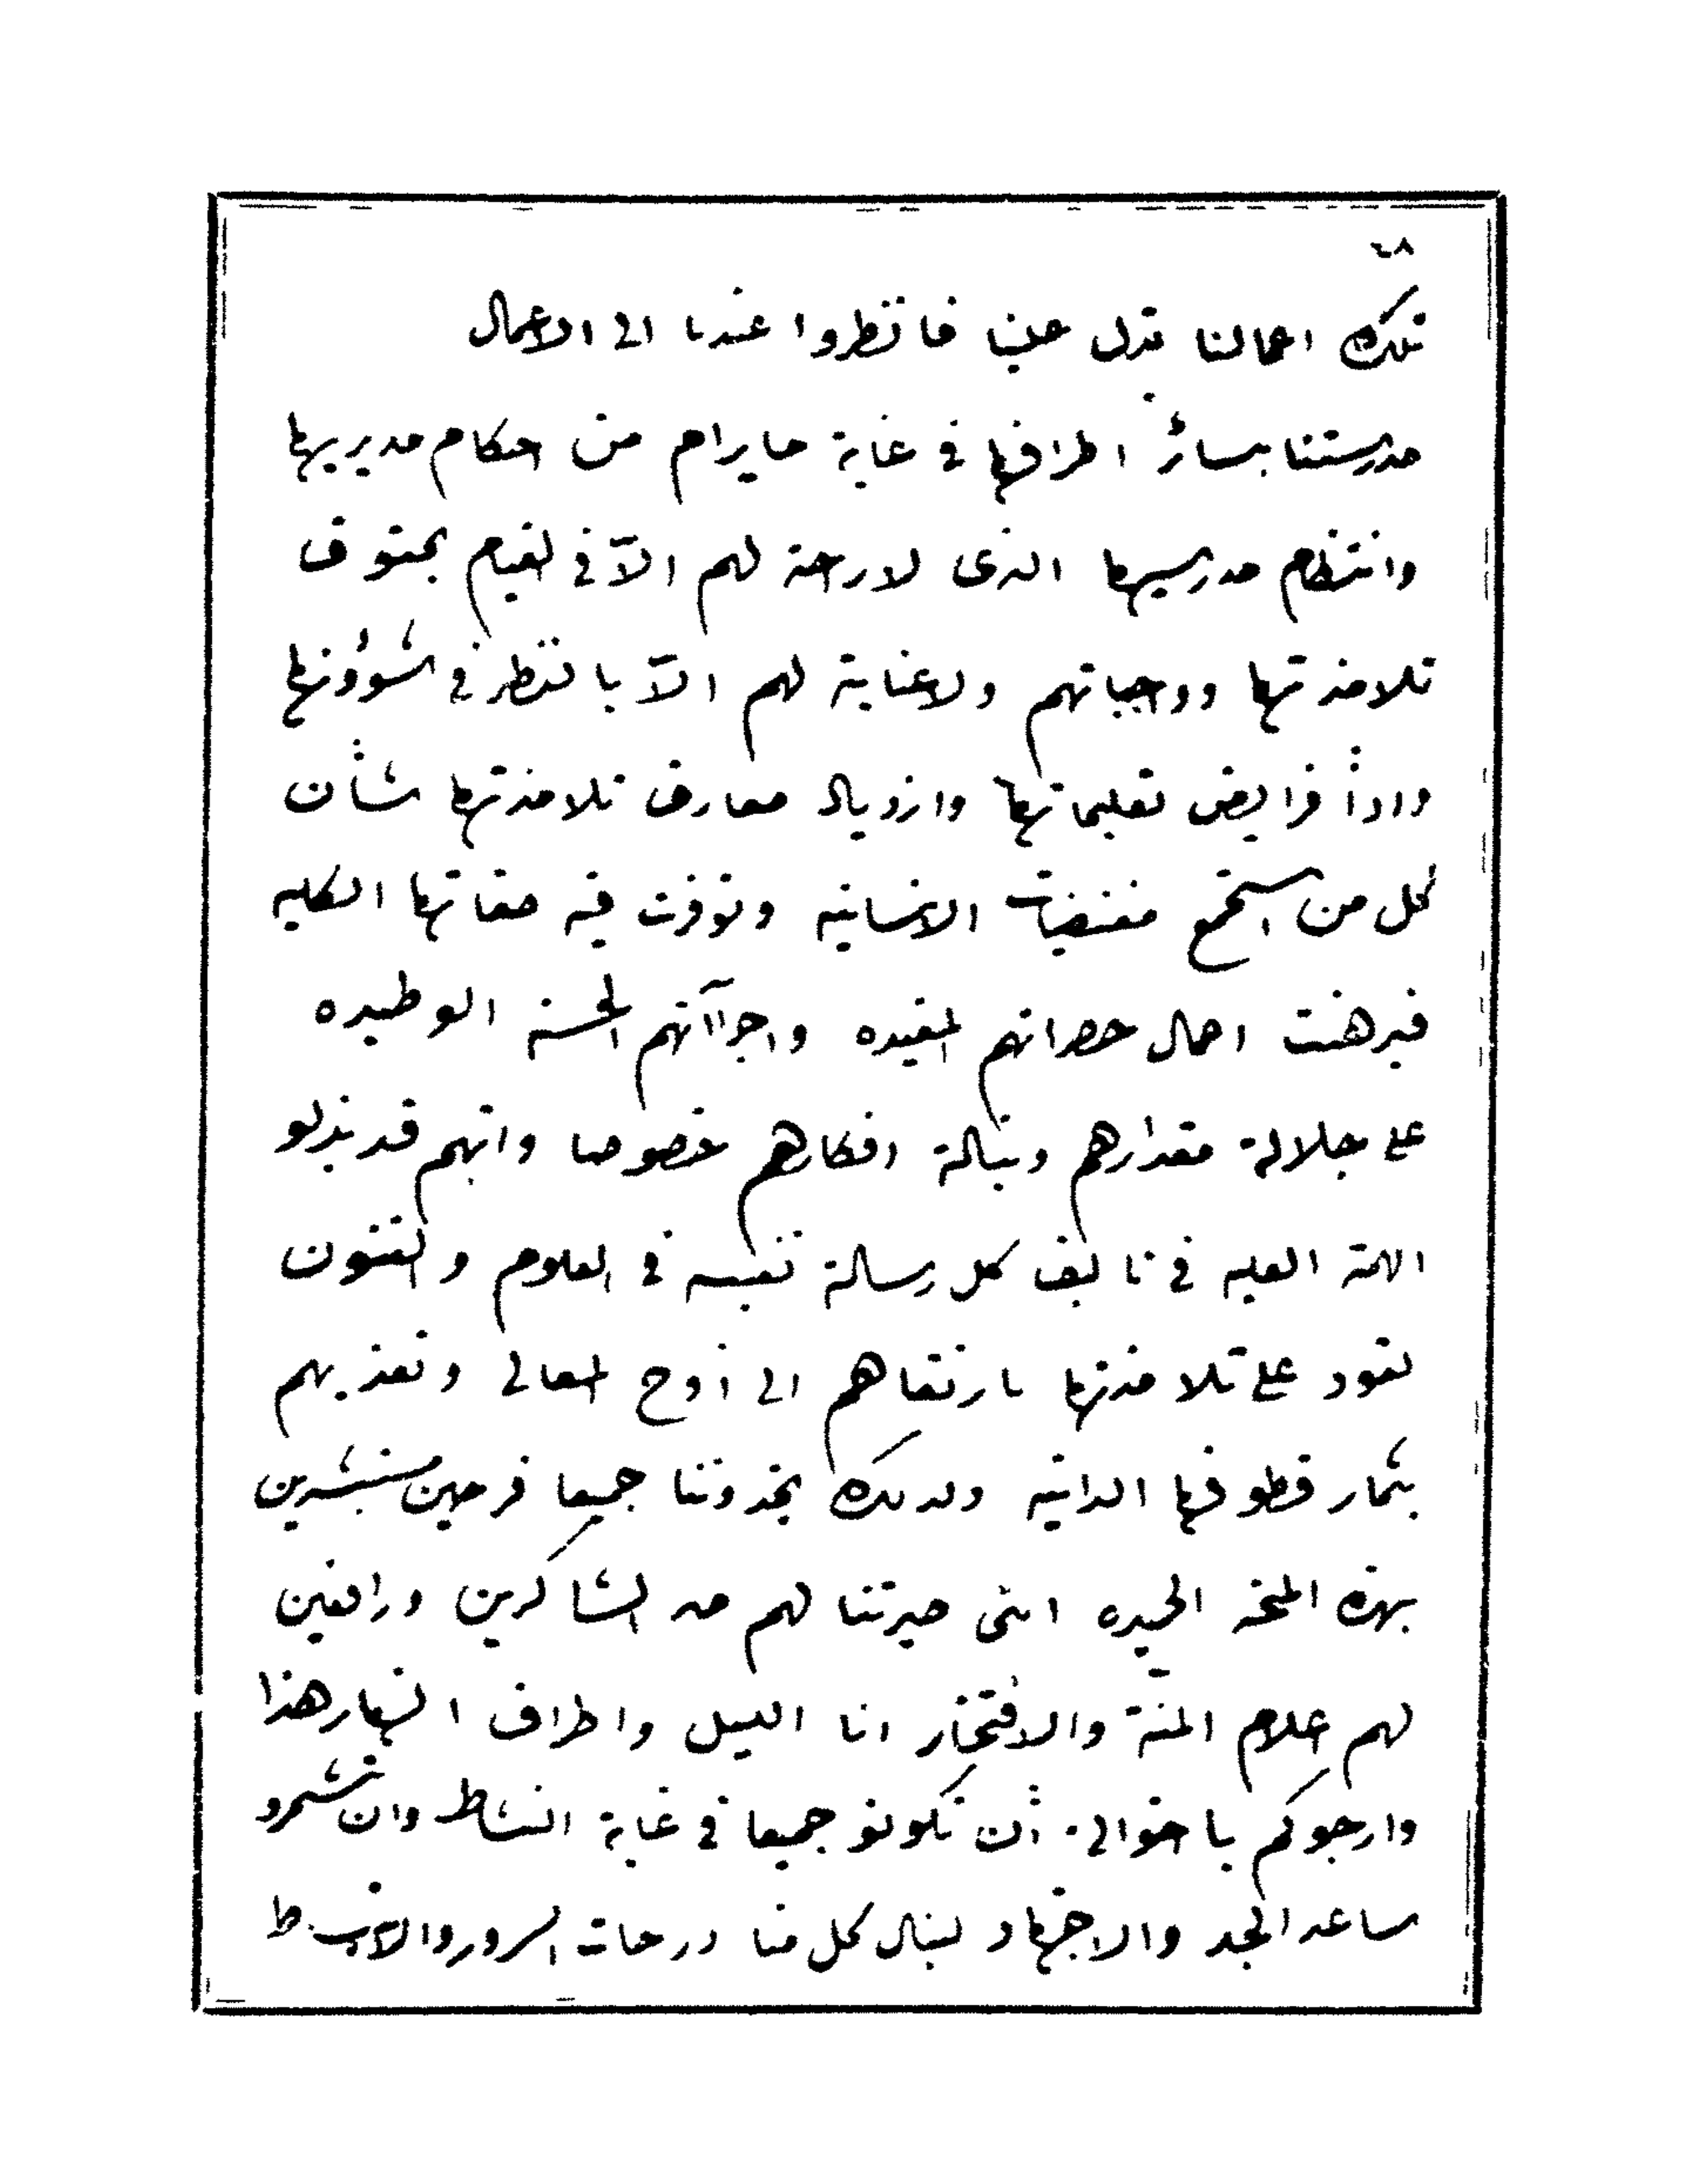 ٤٨
تلك اعمالنا تدل علينا فانظروا عندنا الى الاعمال
مدرستنا بسائر اطرافها فى غاية مايرام من احكام مديريها
وانتظام مدرسيها الذى لاراحة لهم الآ فى القيام بحقوق
تلامذتها وواجباتهم ولاعناية لهم الآ بالنظر فى شؤونها
واداً فرايض تعليماتها وازدياد معارف تلامذتها شأن
كل من استجمع مقتضيات الانسانيه وتوفرت فيه صفاتها الكليه
فبرهنت اعمال حضراتهم المفيده واجراآتهم الحسنه الوطيده
على جلالة مقدارهم ونبالة افكارهم خصوصا وانهم قد بذلو
الهمة العليه فى تاليف كل رسالة نفيسه فى العلوم والفنون
لتعود على تلامذتها بارتقاهم الى أوج المعالى وتغذيهم
بثمار قطوفها الدانيه ولذلك تجدوننا جميعا فرحين مستبشرين
بهذه المنحة الحميده التى صيرتنا لهم من الشاكرين ورافعين
لهم اعلام المنّة والافتخار انا الليل واطراف النهار هذا
وارجوكم يا اخوانى أن تكونو جميعا فى غاية النشاط وان تشمرو
ساعد الجد والاجتهاد لينال كل منا درجات السرور والانبساط